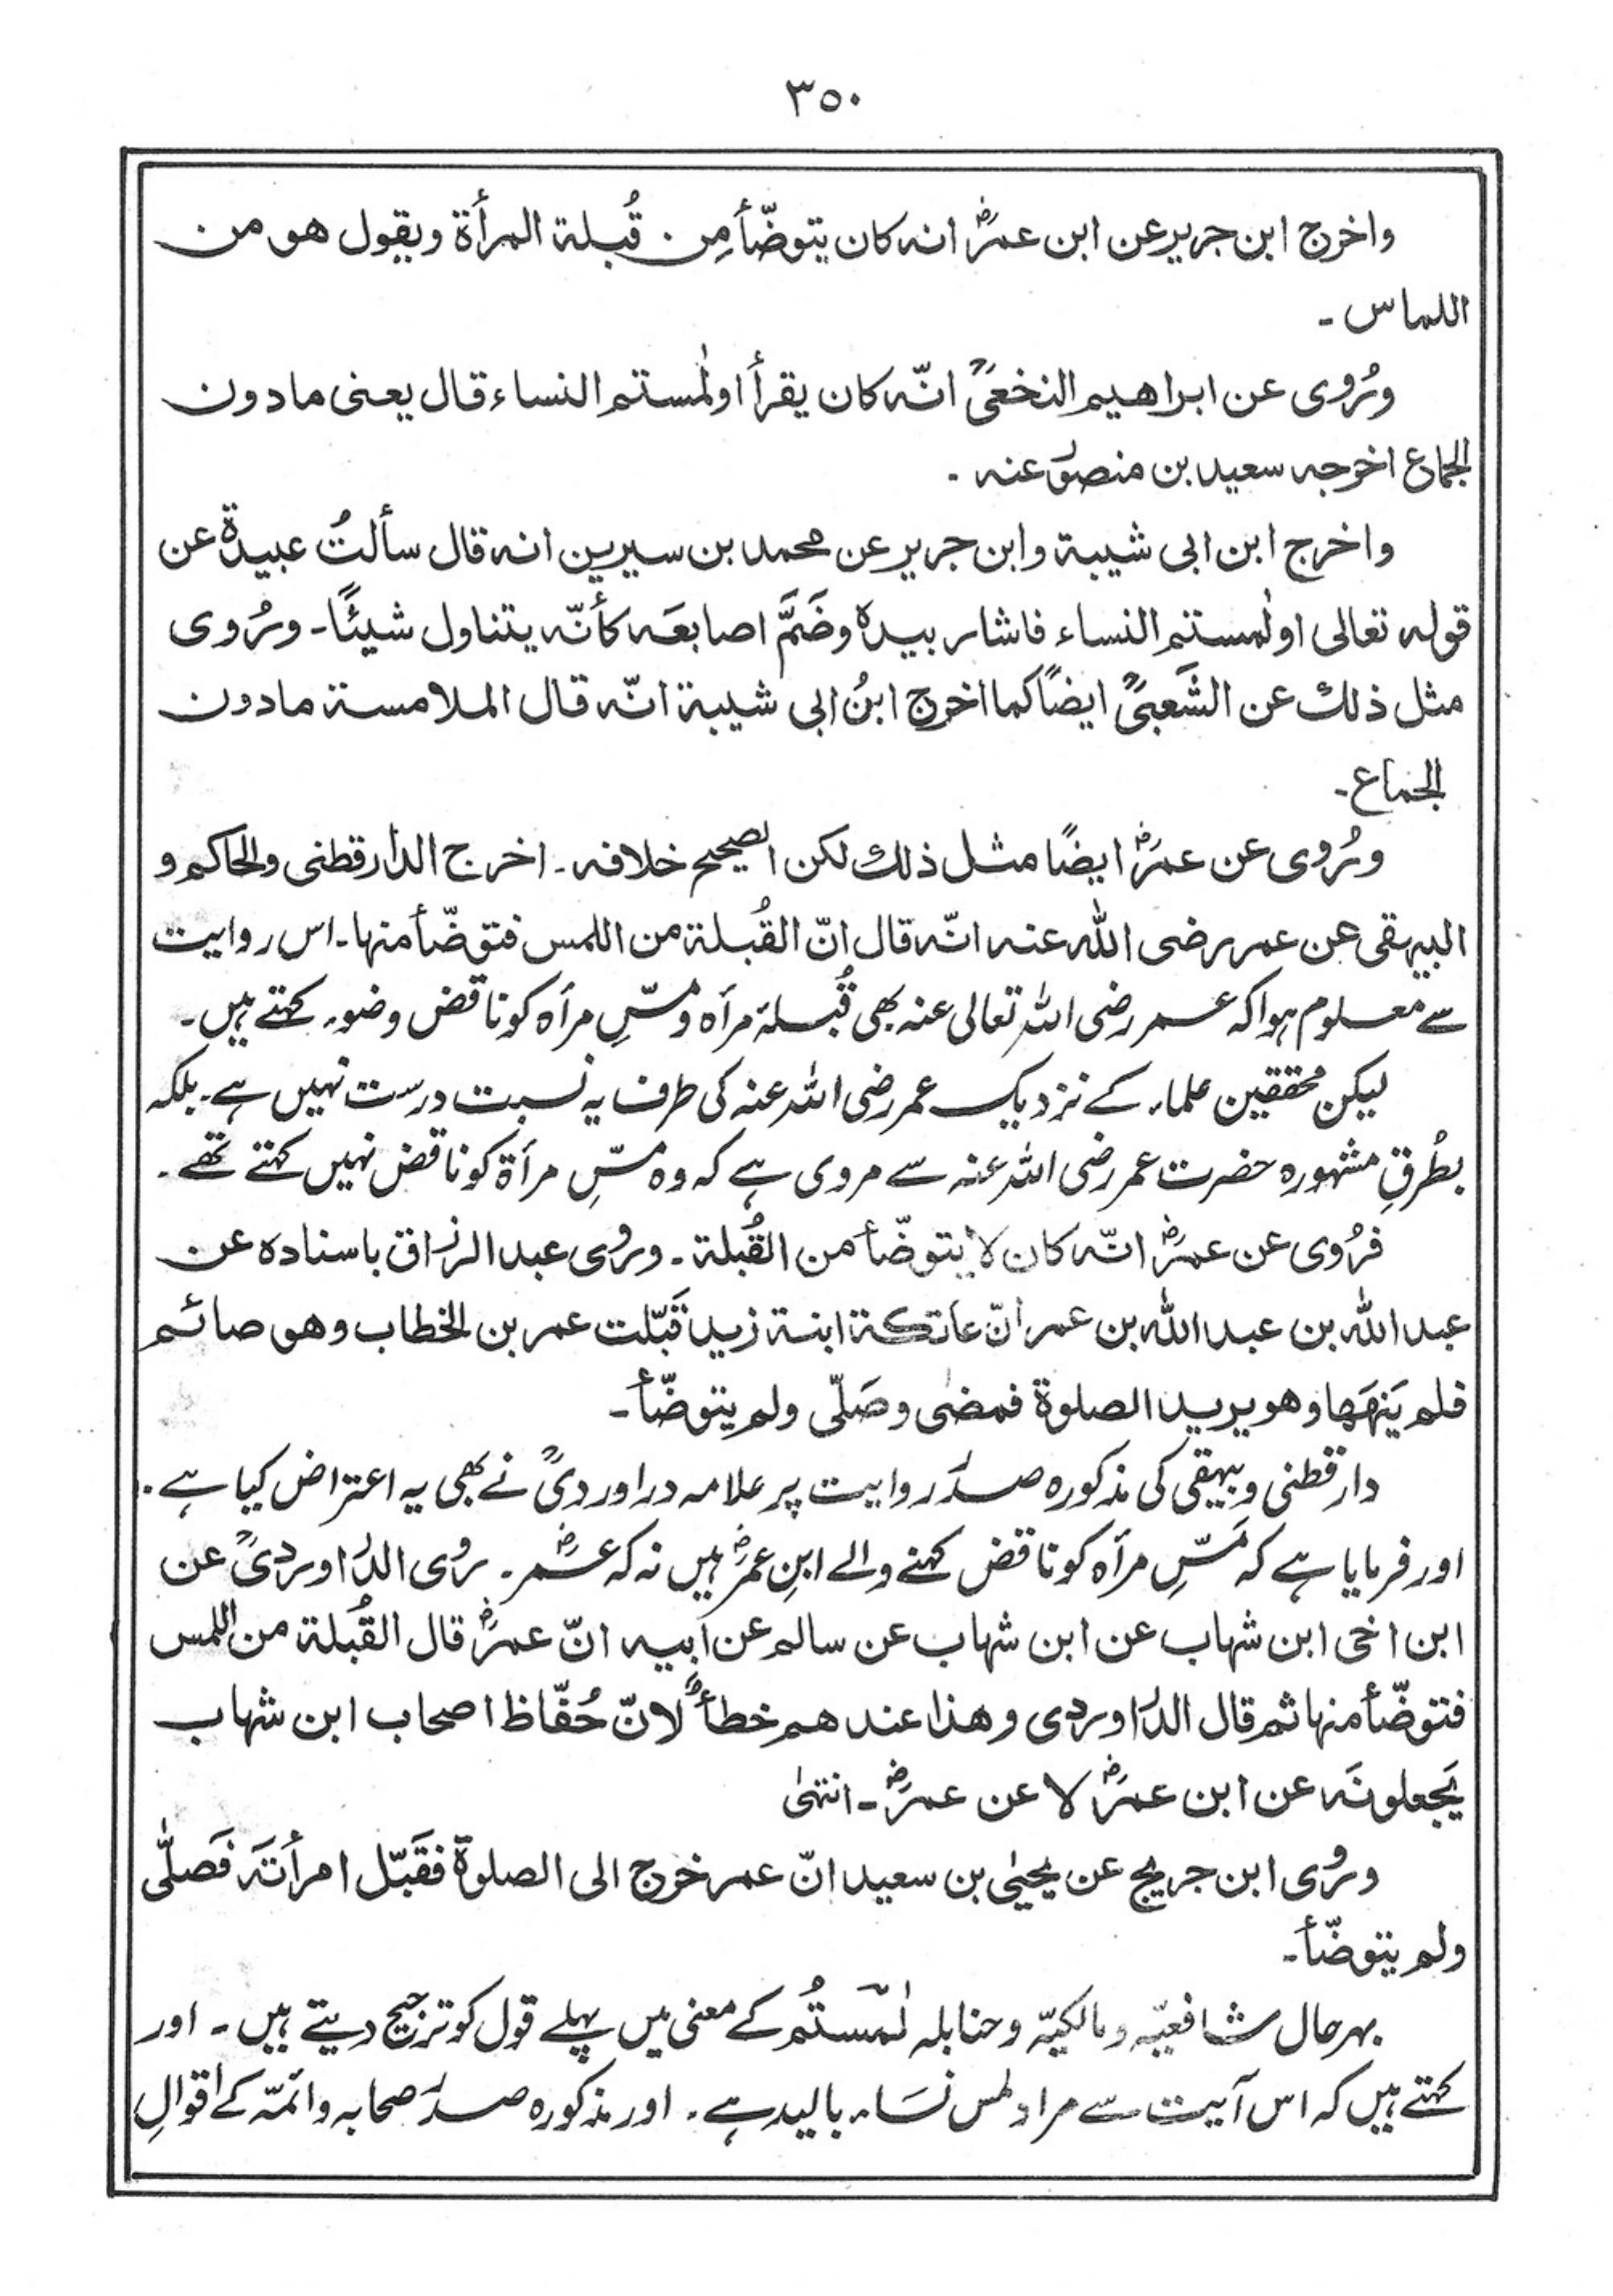 ٣٥٠
واخرج ابن جریر عن ابن عمرؓ انہ کان یتوضّأ مِن قُبلة المرأة ویقول هو من
اللماس ۔
ورُوی عن ابراهیم النخعیؒ انّہ کان یقرأ اولٰمستم النساء قال یعنی مادون
الجماع اخرجہ سعید بن منصور عنہ ۔
واخرج ابن ابی شیبة وابن جریر عن محمد بن سیرین انہ قال سألتُ عبیدة عن
قولہ تعالی اولٰمستم النساء فاشار بیدہ وضَمَّ اصابعَہ کأنّہ یتناول شیئًا۔ ورُوی
مثل ذلك عن الشَّعبیؒ ایضًا کما اخرج ابنُ ابی شیبة انّہ قال الملامسة مادون
الجماع۔
ورُوی عن عمرؓ ایضًا مثل ذلك لکن الصحیح خلافہ ۔ اخرج الدارقطنی والحاکم و
البیہقی عن عمر رضی اللّٰہ عنہ انّہ قال اِنّ القُبلة من اللمس فتوضّأ منہا۔ اس روایت
سے معلوم ہوا کہ عمر رضی اللہ تعالی عنہ بھی قُبلۂ مرأہ و مسِّ مرأہ کو ناقض وضوء کہتے ہیں۔
لیکن محققین علماء کے نزدیک عمر رضی اللہ عنہ کی طرف یہ نسبت درست نہیں ہے۔ بلکہ
بطُرقِ مشہورہ حضرت عمر رضی اللہ عنہ سے مروی ہے کہ وہ مسِّ مرأة کو ناقض نہیں کہتے تھے ۔
فرُوی عن عمرؓ انّہ کان لا یتوضّأ من القُبلة ۔ وروٰی عبد الرزاق باسنادہ عن
عبد اللّٰہ بن عبد اللّٰہ بن عمر انّ عاتکة ابنة زید قَبّلت عمر بن الخطاب وهو صائم
فلم یَنہَہا وهو یرید الصلوة فمضٰی وصَلّی ولم یتوضّأ۔
دارقطنی و بیہقی کی مذکورہ صدر روایت پر علامہ دراوردیؒ نے بھی یہ اعتراض کیا ہے ۔
اور فرمایا ہے کہ مَسِّ مرأہ کو ناقض کہنے والے ابنِ عمرؓ ہیں نہ کہ عمرؓ ۔ روٰی الدراوردیؒ عن
ابن اخی ابن شہاب عن ابن شہاب عن سالم عن ابیہ انّ عمرؓ قال القُبلة من اللمس
فتوضّأ منہا ثم قال الدراوردی وهذا عندهم خطأٌ لانّ حُفّاظ اصحاب ابن شہاب
یَجعلونَہ عن ابن عمرؓ لا عن عمرؓ ۔ انتہٰی
وروٰی ابن جریج عن یحیٰی بن سعید انّ عمر خرج الی الصلوة فقَبّل امرأتَہ فَصلّٰی
ولم یتوضّأ۔
بہرحال شافعیّہ و مالکیّہ و حنابلہ لٰمَستُم کے معنی میں پہلے قول کو ترجیح دیتے ہیں ۔ اور
کہتے ہیں کہ اس آیت سے مراد لمس نسَاء بالید ہے ۔ اور مذکورہ صدر صحابہ و ائمّہ کے اقوالِ